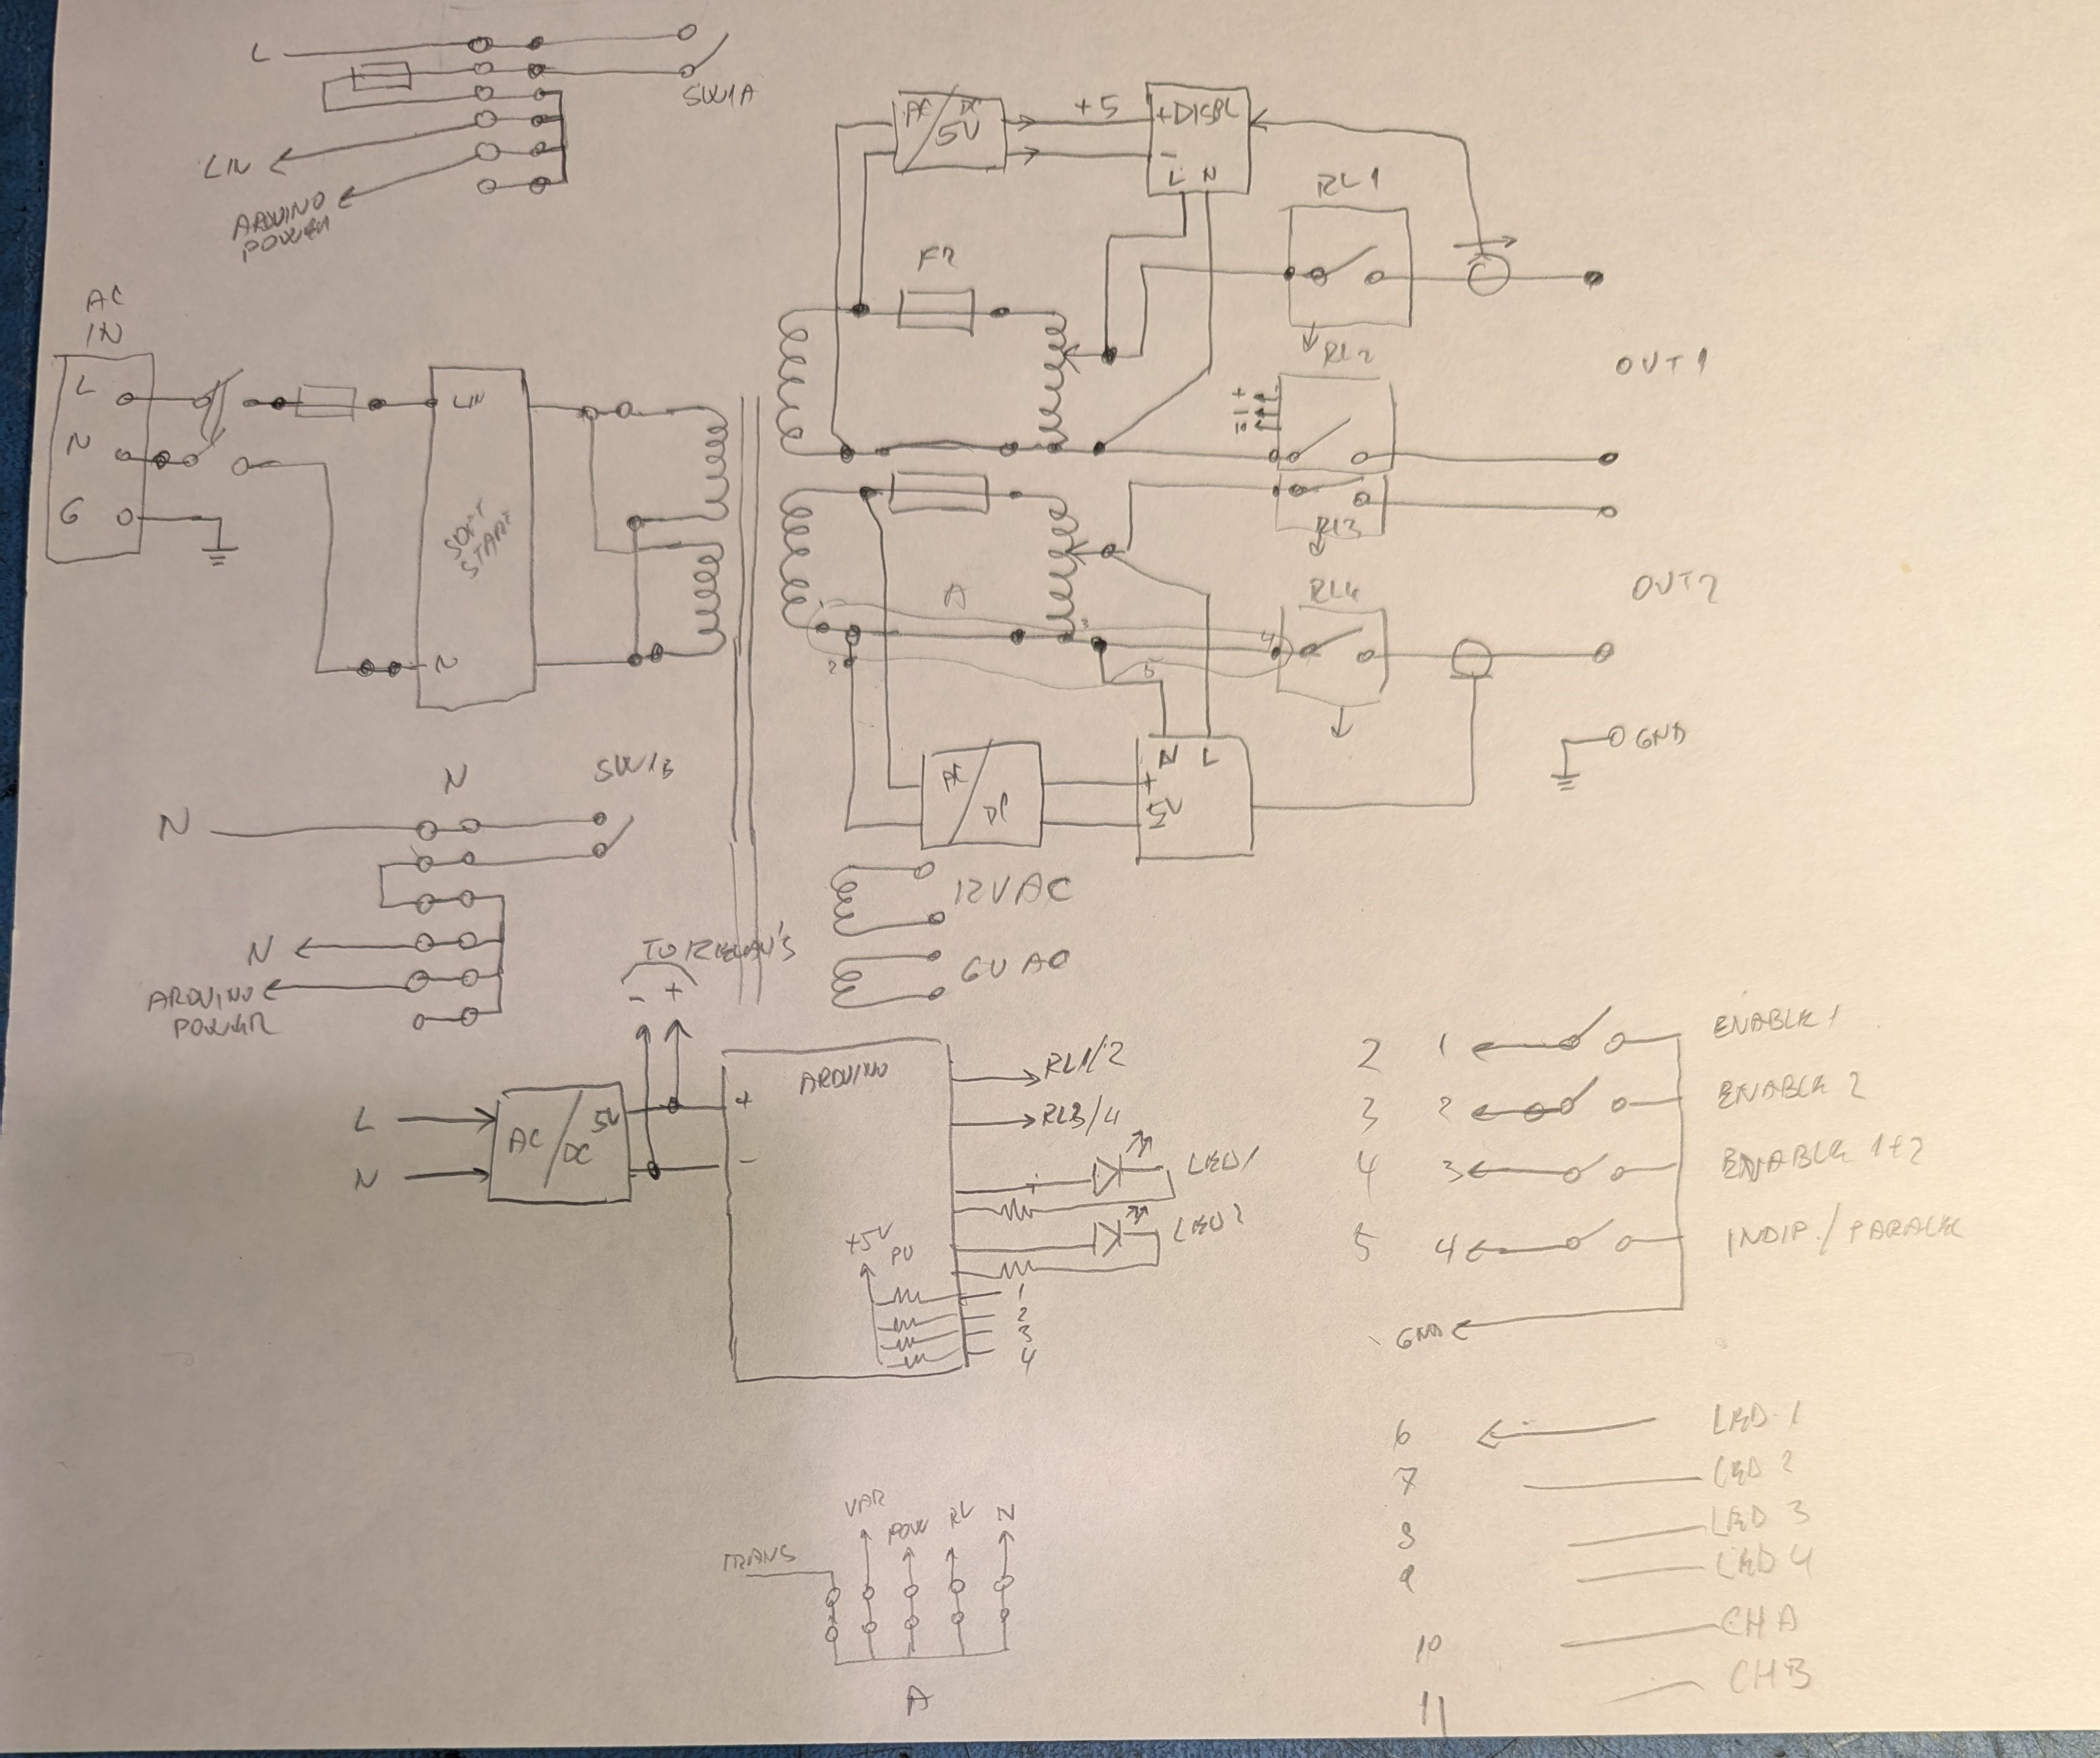 L
SW1A
LIN
ARDUINO
POWER
AC
IN
L
N
G
LIN
SOFT
START
N
AC/DC
5V
+5
+DISPL
-
L N
F2
RL1
RL2
+
-
OUT1
RL3
RL4
OUT2
A
1
2
3
4
5
GND
AC/DC
N L
+
5V
-
12VAC
6VAC
N
N
SW1B
N
ARDUINO
POWER
TO RELAY'S
- +
L
N
AC/DC
5V
ARDUINO
+
-
RL1/2
RL3/4
LED1
LED2
+5V
PU
1
2
3
4
2 1 ENABLE 1
3 2 ENABLE 2
4 3 ENABLE 1+2
5 4 INDIP./PARALEL
GND
6 LED 1
7 LED 2
8 LED 3
9 LED 4
10 CH A
11 CH B
TRANS
VAR
POW
RL
N
A